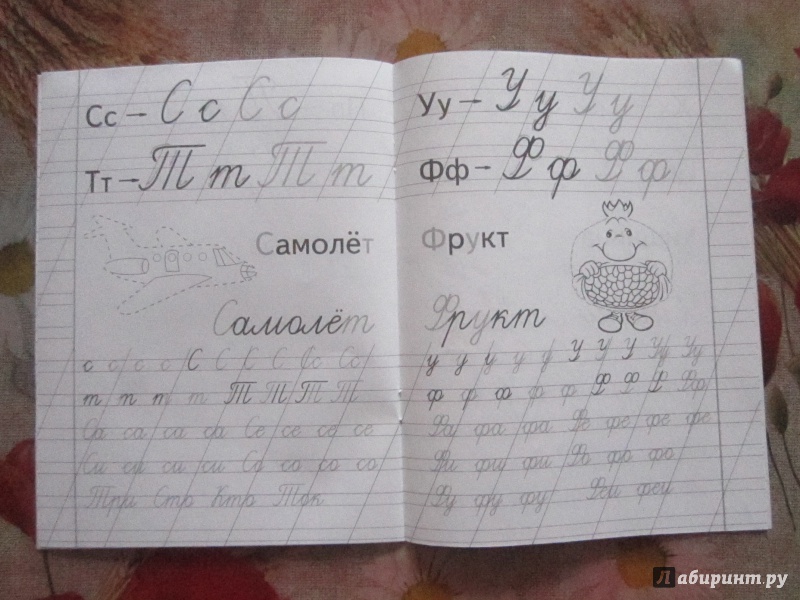 Сс – С с С с
Тт – Т т Т т
Самолёт
Самолёт
с с с с С С С С Сс Сс
т т т т Т Т Т Т
Са са са са Се се се се
Си си си си Со со со со
Три Стр Ктр Ток
Уу – У у У у
Фф – Ф ф Ф ф
Фрукт
Фрукт
у у у у у У У У Уу Уу
ф ф ф ф ф ф Ф Ф Ф Фф
Фа фа фа Фе фе фе фе
Фи фи фи Фо фо фо
Фу фу фу Феи феи
Лабиринт.ру